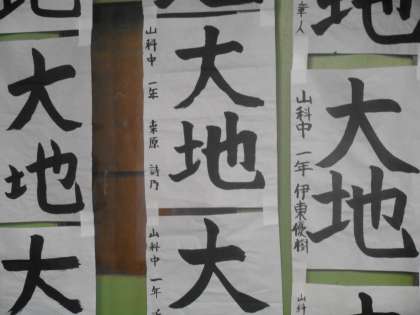 地
大地
大
山科中 一年 桑原 詩乃
大地
山科中 一年
大
人
地
山科中 一年 伊東優樹
大地
山科